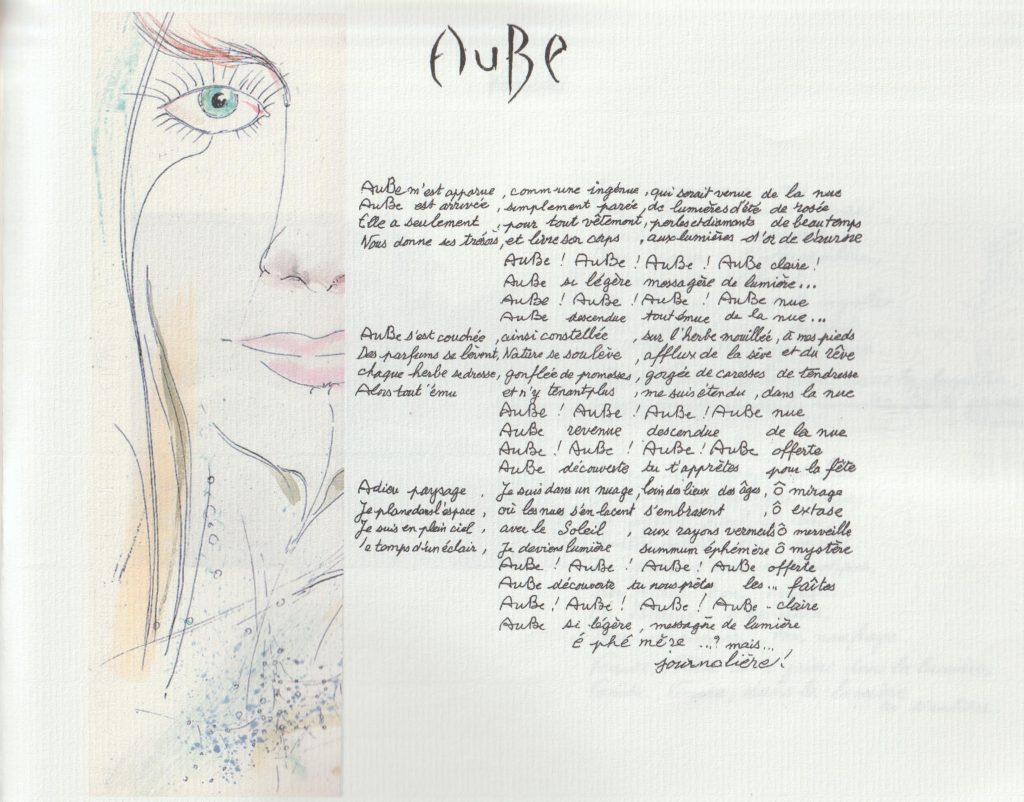 AuBe
AuBe m'est apparue, comm-une ingénue, qui serait venue de la nue
AuBe est arrivée, simplement parée, de lumières d'été de rosée
Elle a seulement, pour tout vêtement, perles et diamants de beau temps
Nous donne ses trésors, et livre son corps, aux lumières d'or de l'aurore
AuBe ! AuBe ! AuBe ! AuBe claire !
AuBe si légère messagère de lumière...
AuBe ! AuBe ! AuBe ! AuBe nue
AuBe descendue tout énue de la nue...
AuBe s'est couchée, ainsi constellée, sur l'herbe mouillée, à mes pieds
Des parfums se lèvent, Nature se soulève, afflux de la sève et du rêve
chaque herbe se dresse, gonflée de promesses, gorgée de caresses de tendresse
Alors tout ému et n'y tenant plus, me suis étendu, dans la nue
AuBe ! AuBe ! AuBe ! AuBe nue
AuBe revenue descendue de la nue
AuBe ! AuBe ! AuBe ! AuBe offerte
AuBe découverte tu t'apprêtes pour la fête
Adieu paysage, Je suis dans un nuage, loin des lieux des âges, ô mirage
Je plane dans l'espace, où les nues s'enlacent s'embrasent, ô extase
Je suis en plein ciel, avec le Soleil, aux rayons vermeils ô merveille
'e temps d'un éclair, Je deviens lumière summum éphémère ô mystère
AuBe ! AuBe ! AuBe ! AuBe offerte
AuBe découverte tu nous prêtes les... faîtes
AuBe ! AuBe ! AuBe ! AuBe - claire
AuBe si légère, messagère de lumière
é phé mère ...? mais...
journalière !